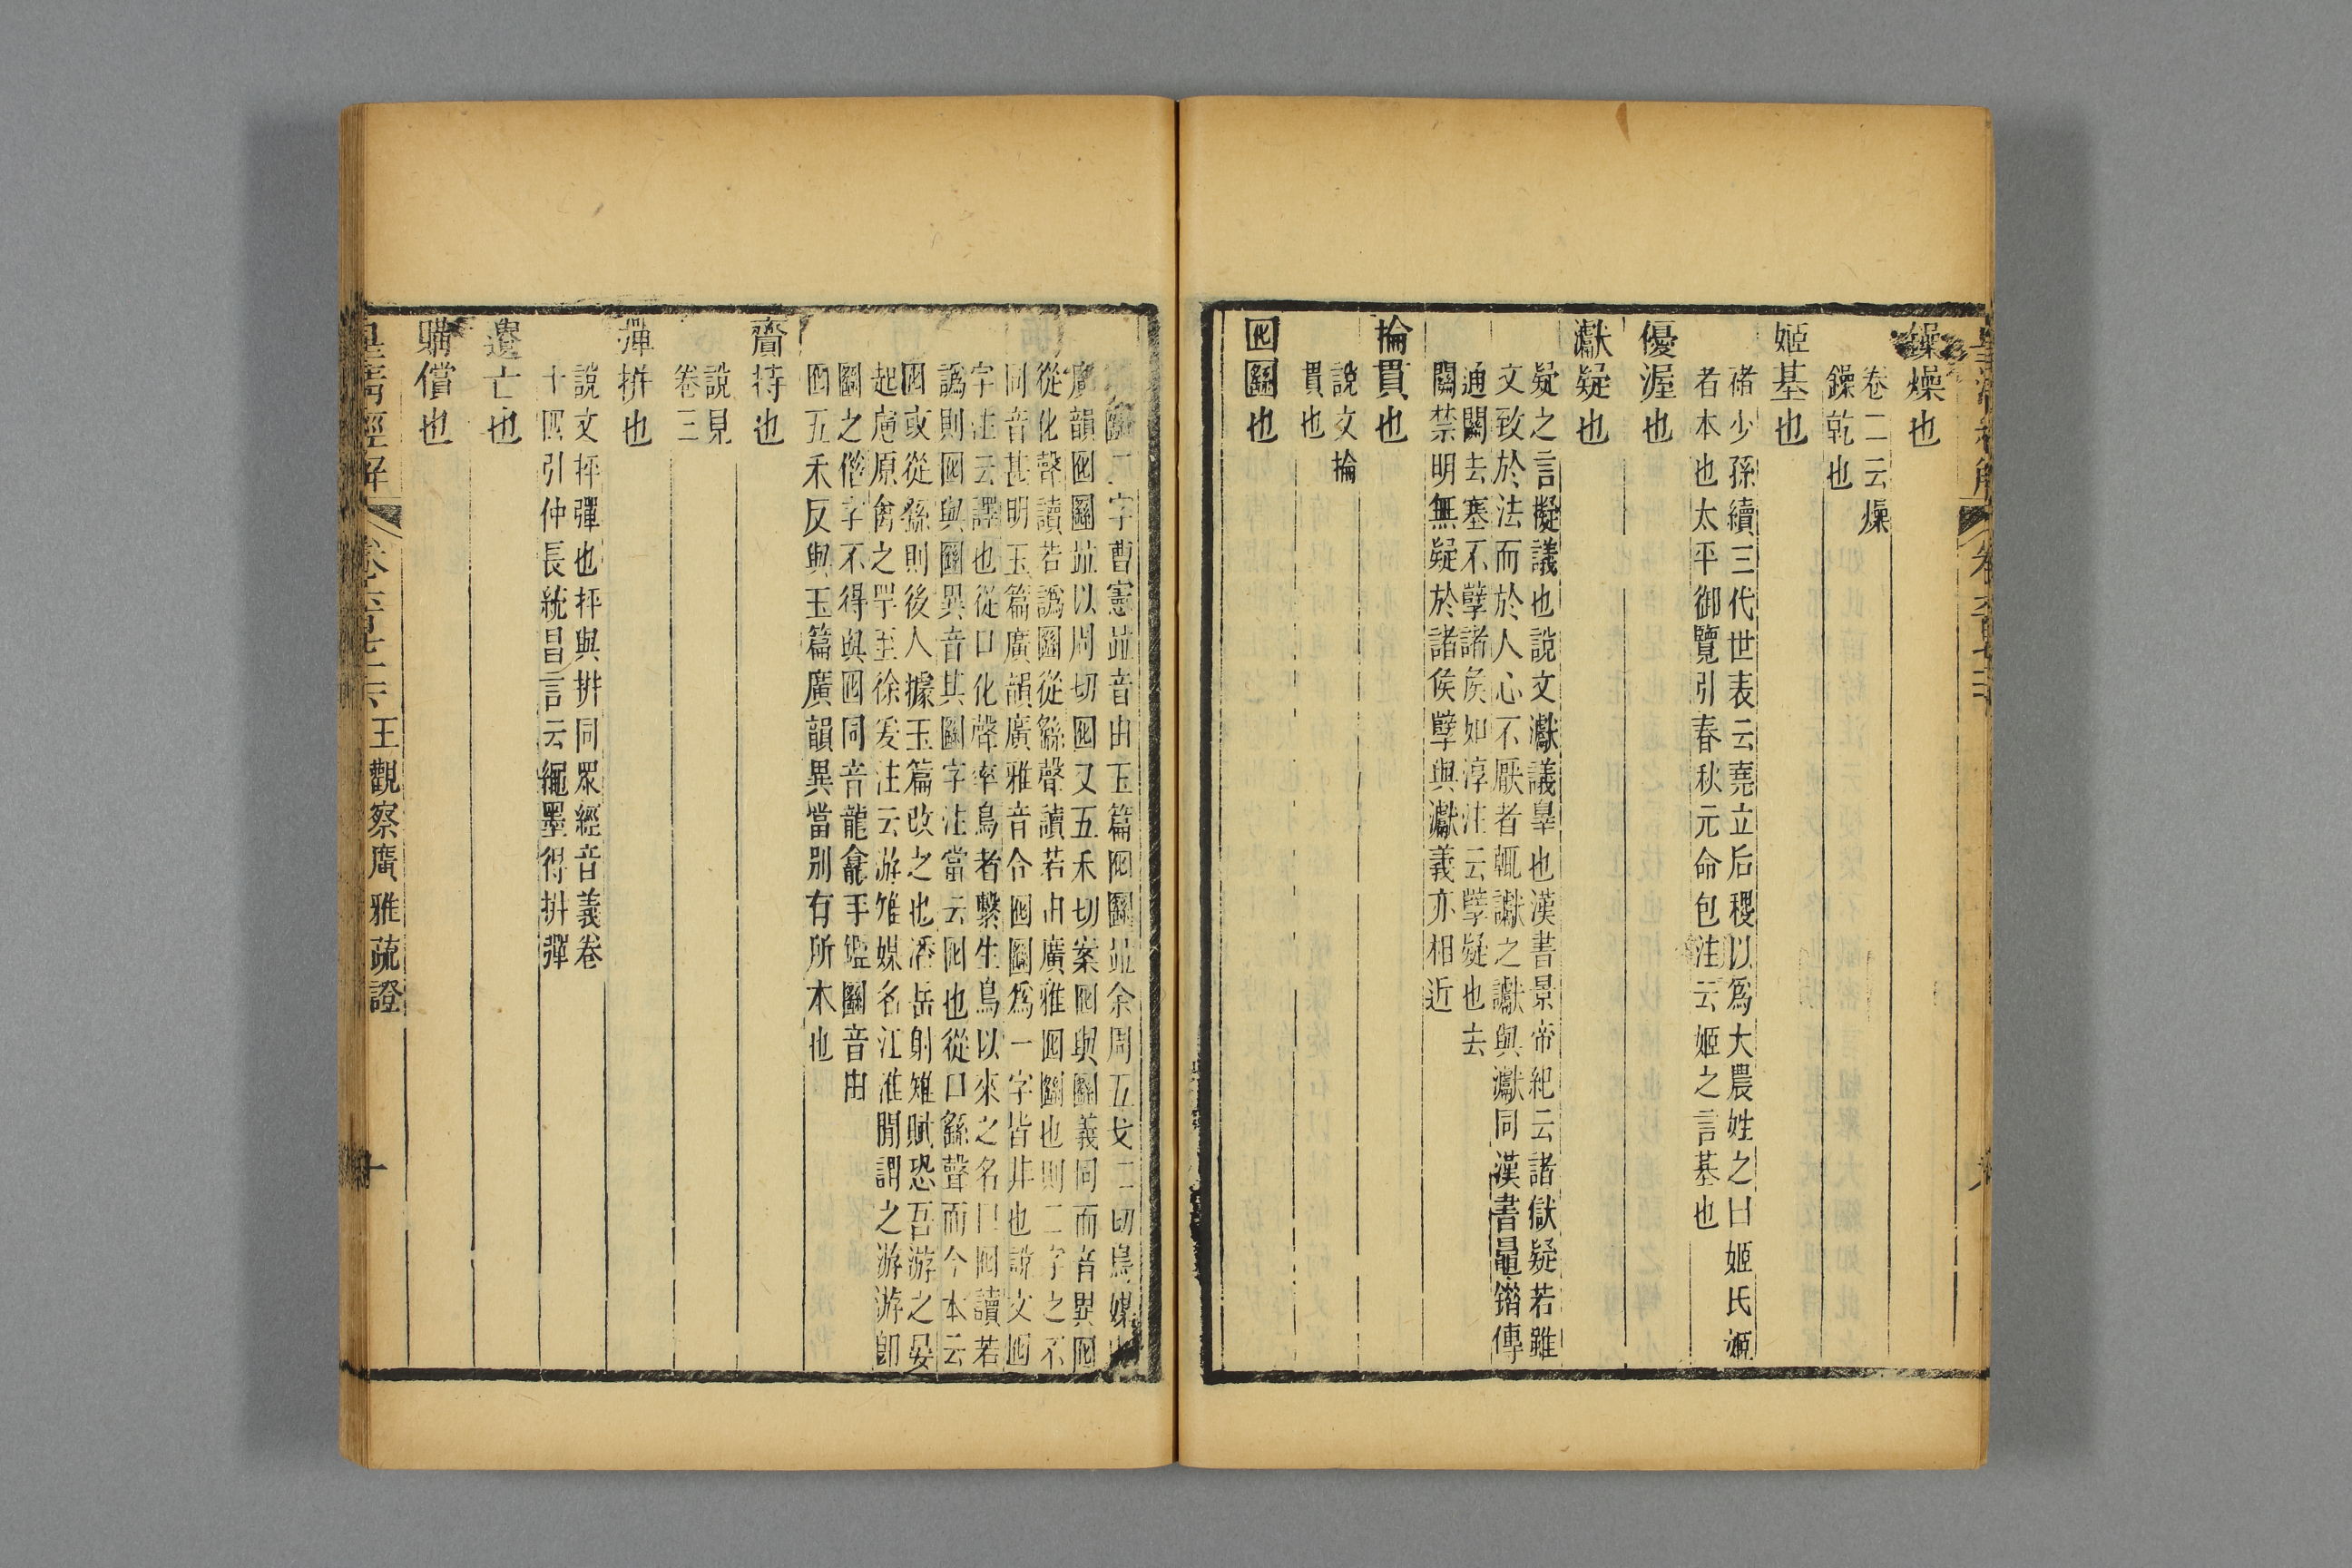 皇清經解
卷六百七十
鐰燥也
卷二云燥
鐰乾也
姬基也
禇少孫續三代世表云堯立后稷以爲大農姓之曰姬氏姬
者本也太平御覽引春秋元命包注云姬之言基也
優渥也
瀫疑也
疑之言擬議也說文瀫議辠也漢書景帝紀云諸獄疑若雖
文致於法而於人心不厭者輒讞之讞與瀫同漢書鼂錯傳
通關去塞不孽諸侯如淳注云孽疑也去
關禁明無疑於諸侯孽與瀫義亦相近
掄貫也
說文掄
貫也
囮圝也
二字曹憲竝音由玉篇囮圝竝余周五戈二切鳥媒
廣韻囮圝竝以周切囮又五禾切案囮與圝義同而音異囮
從化聲讀若譌圝從繇聲讀若由廣雅囮圝也則二字之不
同音甚明玉篇廣韻廣雅音合囮圝爲一字皆非也說文囮
字注云譯也從口化聲率鳥者繫生鳥以來之名曰囮讀若
譌則囮與圝異音其圝字注當云囮也從口繇聲而今本云
囮或從繇則後人據玉篇改之也潘岳射雉賦恐吾游之晏
起慮原禽之罕至徐爰注云游雉媒名江淮閒謂之游游卽
圝之偕字不得與囮同音龍龕手鑑圝音由
囮五禾反與玉篇廣韻異當別有所本也
齎持也
說見
卷三
彈拼也
說文抨彈也抨與拼同眾經音義卷
十四引仲長統昌言云繩墨得拼彈
遺亡也
購償也
皇淸經解
王觀察廣雅疏證
十